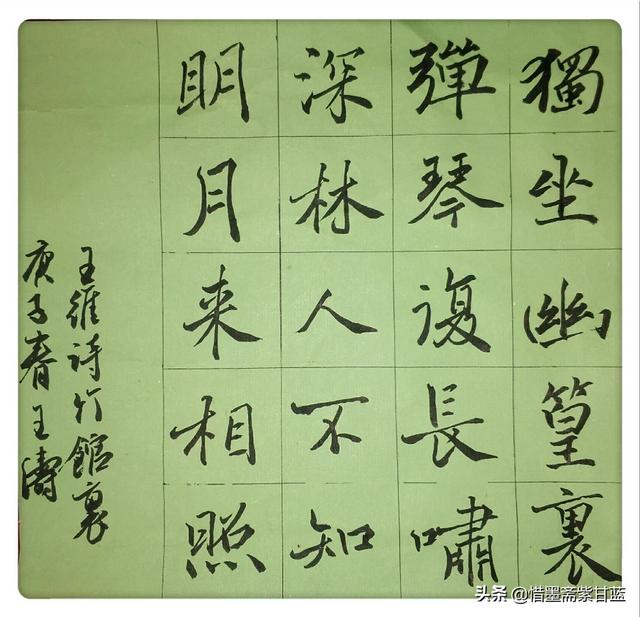 獨坐幽篁裏
彈琴復長嘯
深林人不知
明月来相照
王維詩竹館裏
庚子春王濤
头条 @惜墨斋紫甘蓝